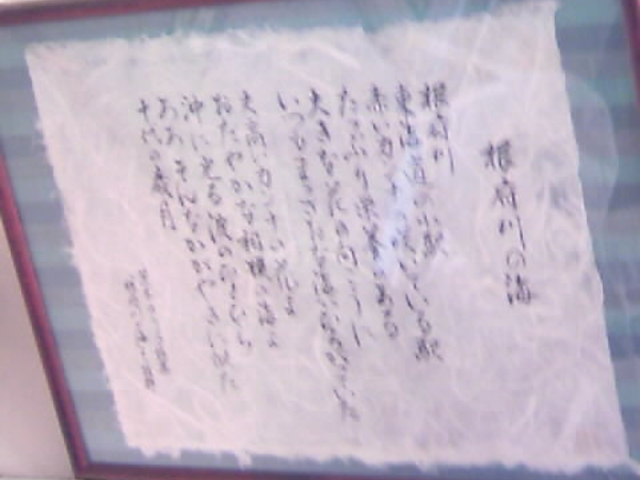 根府川の海
根府川
東海道の小駅
赤いカンナの咲いている駅
たっぷり栄養のある
大きな花の向うに
いつもまっさおな海がひろがっていた
丈高いカンナの花よ
おだやかな相模の海よ
沖に光る波のひとひら
ああそんなかがやきに似た
十代の歳月